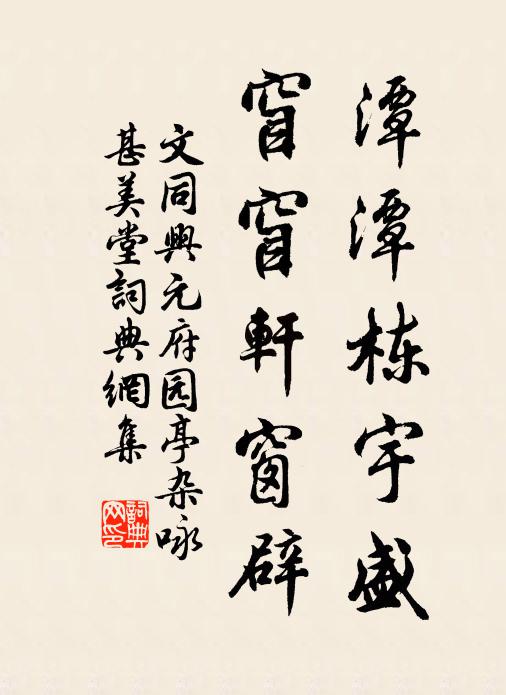 潭潭栋宇盛
窅窅軒窗辟
文同興元府园亭杂咏
甚美堂詞典網集
詞典网印